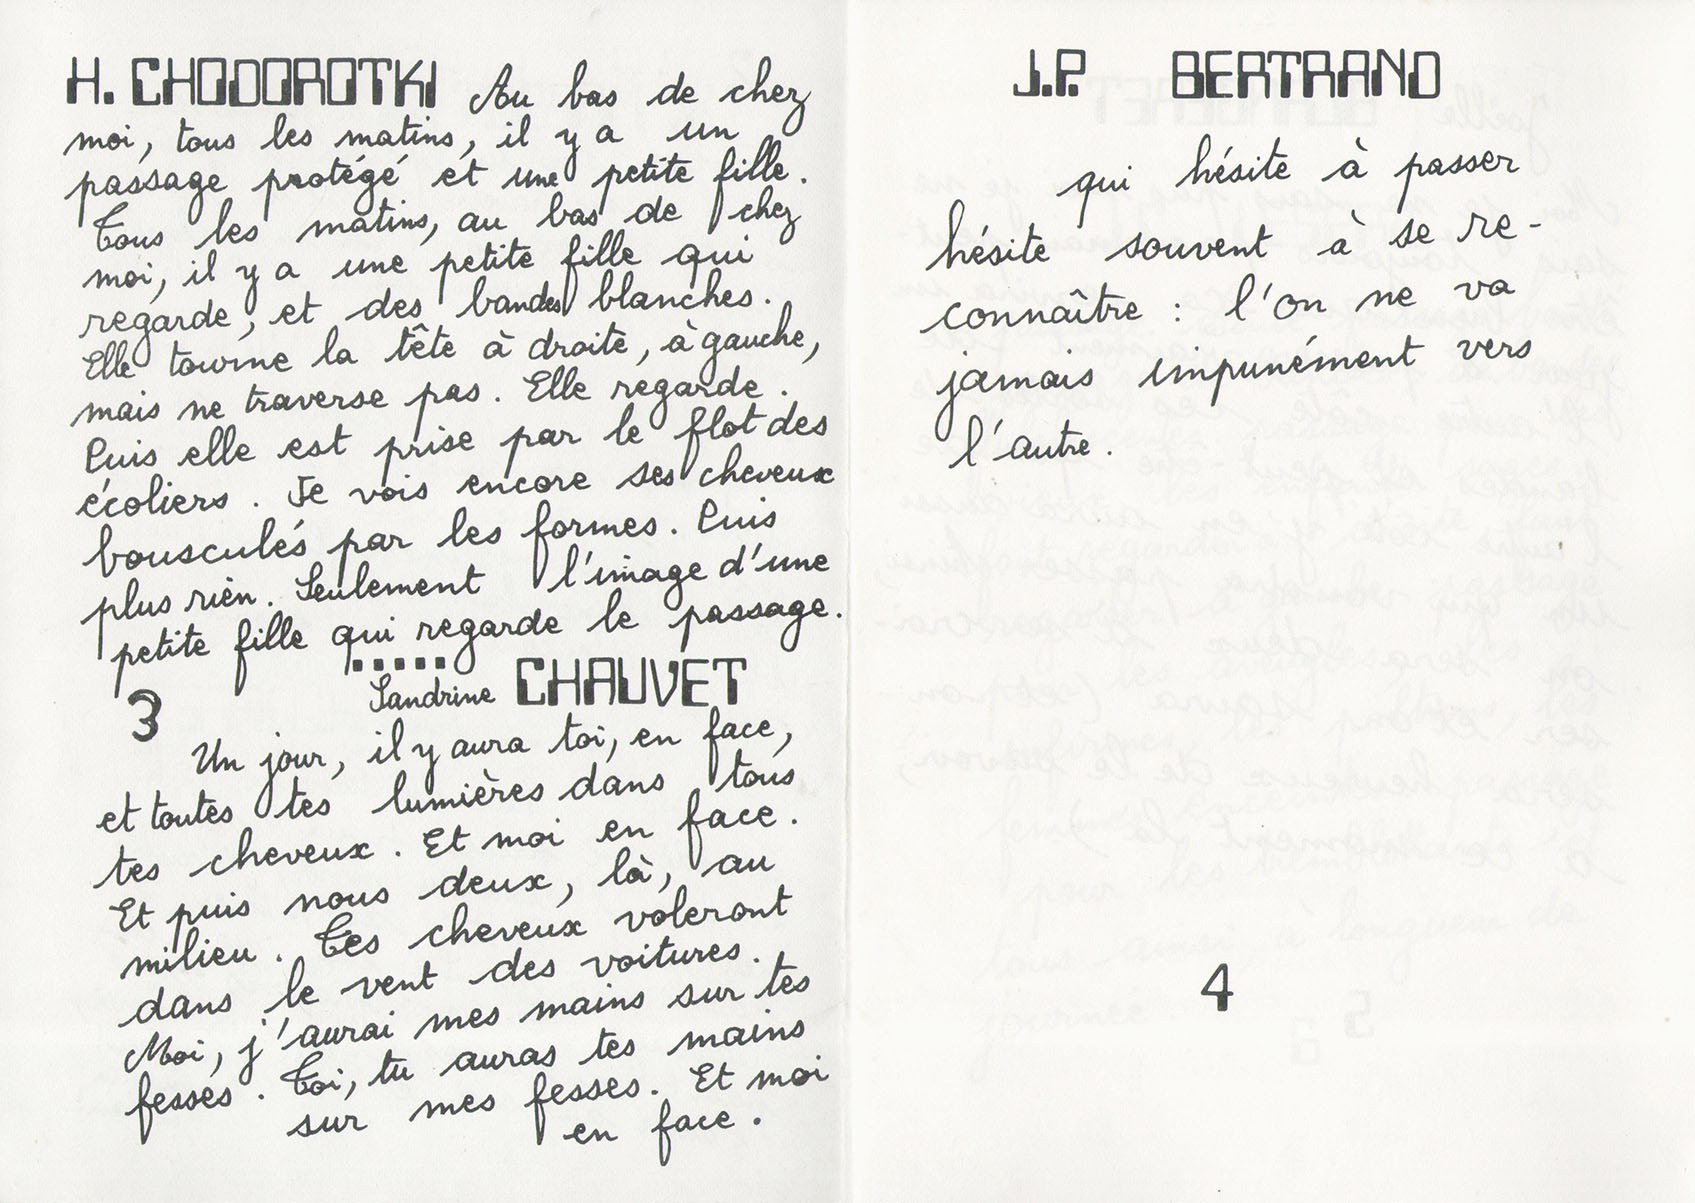 H. CHODOROTKI Au bas de chez
moi, tous les matins, il y a un
passage protégé et une petite fille.
Tous les matins, au bas de chez
moi, il y a une petite fille qui
regarde, et des bandes blanches.
Elle tourne la tête à droite, à gauche,
mais ne traverse pas. Elle regarde.
Puis elle est prise par le flot des
écoliers. Je vois encore ses cheveux
bousculés par les formes. Puis
plus rien. Seulement l'image d'une
petite fille qui regarde le passage.
.....
3 Sandrine CHAUVET
Un jour, il y aura toi, en face,
et toutes tes lumières dans tous
tes cheveux. Et moi en face.
Et puis nous deux, là, au
milieu. Tes cheveux voleront
dans le vent des voitures.
Moi, j'aurai mes mains sur tes
fesses. Toi, tu auras tes mains
sur mes fesses. Et moi
en face.
J.P. BERTRAND
qui hésite à passer
hésite souvent à se re-
connaître : l'on ne va
jamais impunément vers
l'autre.
4